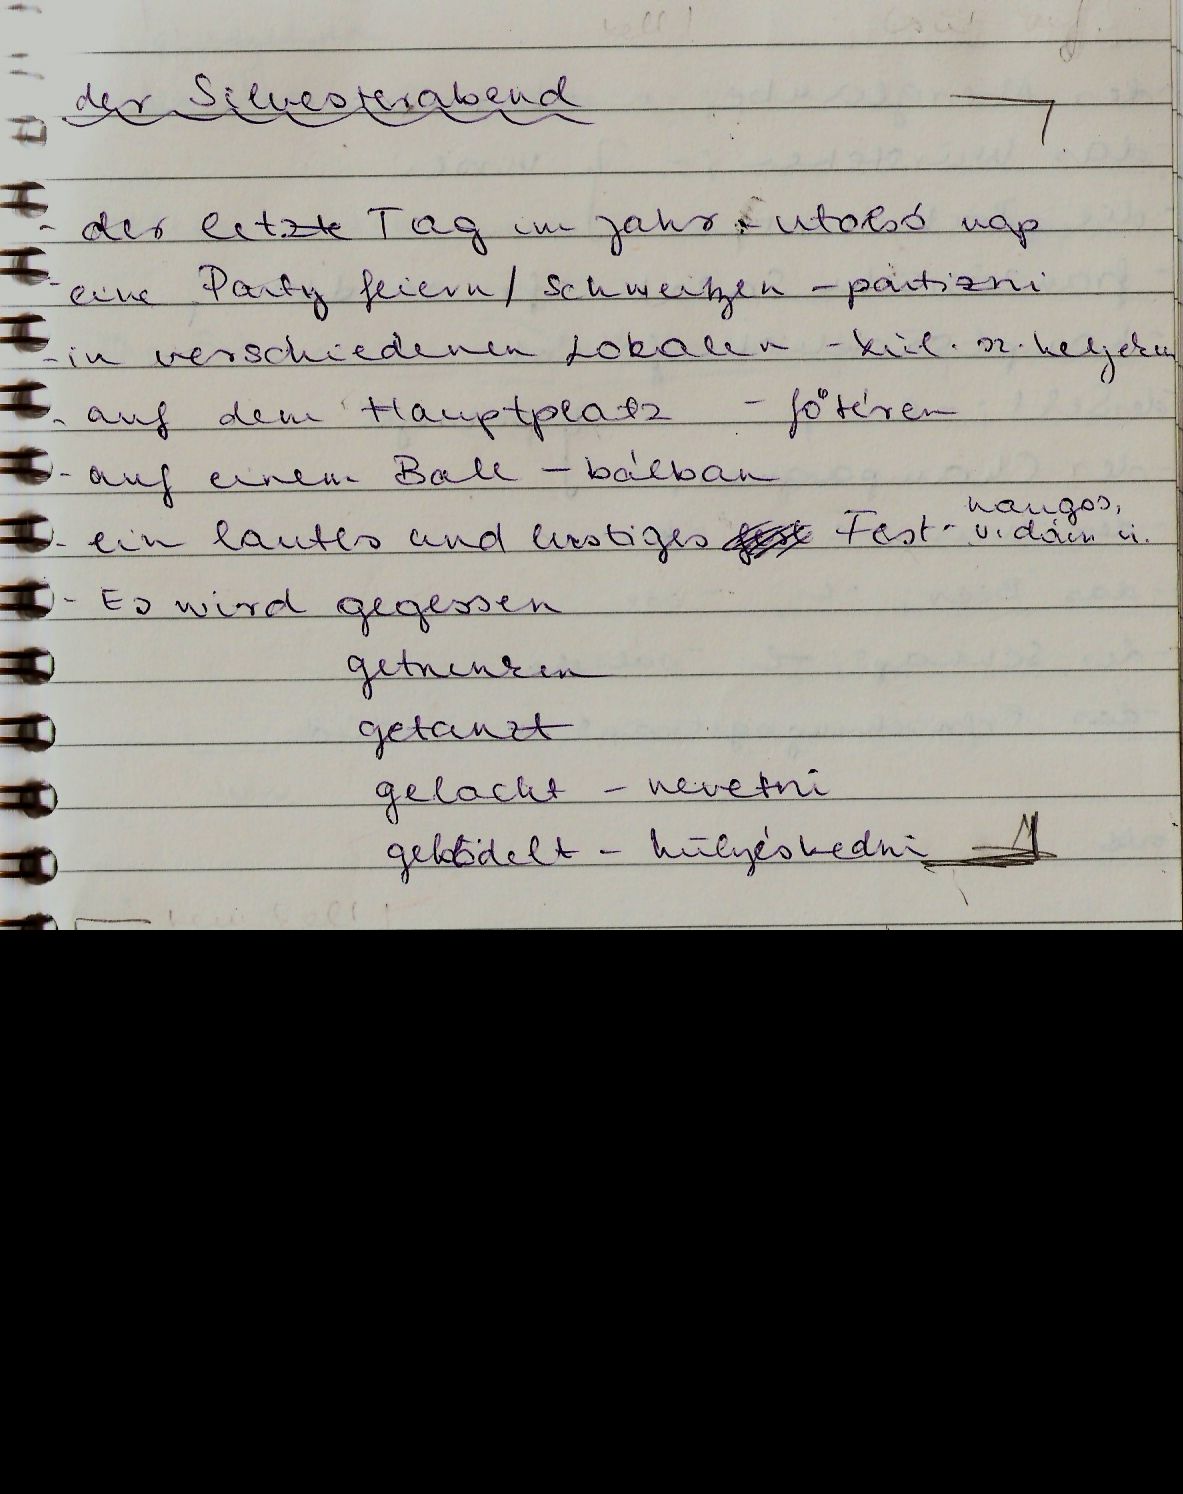 der Silvesterabend
- der letzte Tag im Jahr - utolsó nap
- eine Party feiern / schmeißen - partizni
- in verschiedenen Lokalen - kül. sz. helyeken
- auf dem Hauptplatz - főtéren
- auf einem Ball - bálban
- ein lautes und lustiges Fest - hangos, vidám ü.
- Es wird gegessen
getrunken
getanzt
gelacht - nevetni
geblödelt - hülyéskedni